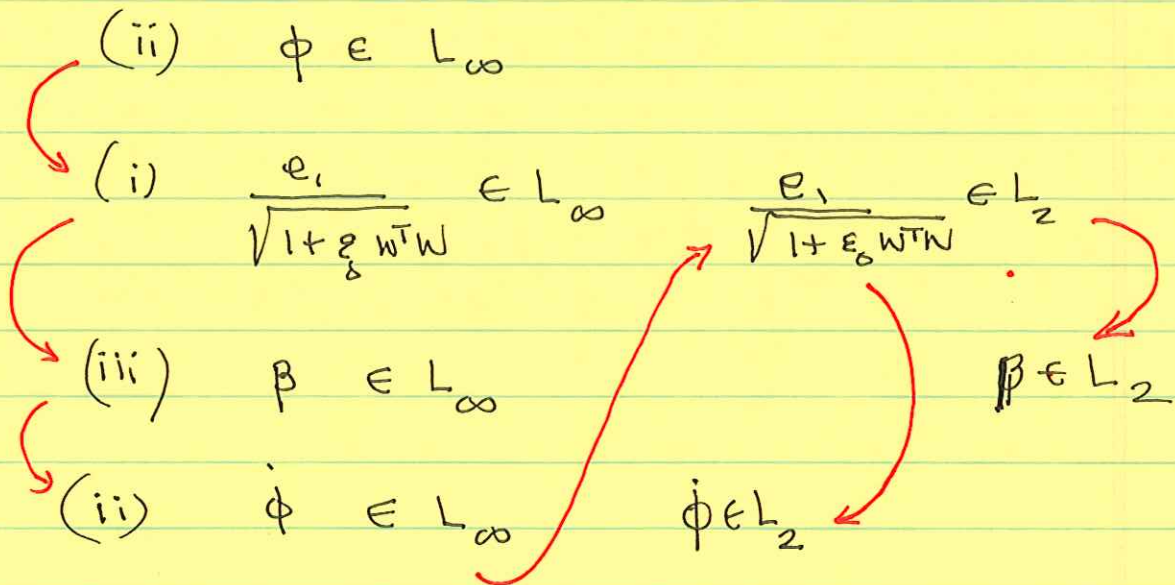 (ii) ϕ ∈ L∞
(i) e₁/√(1+ε₀ wᵀw) ∈ L∞ e₁/√(1+ε₀ wᵀw) ∈ L₂
(iii) β ∈ L∞ β ∈ L₂
(ii) ϕ̇ ∈ L∞ ϕ̇ ∈ L₂